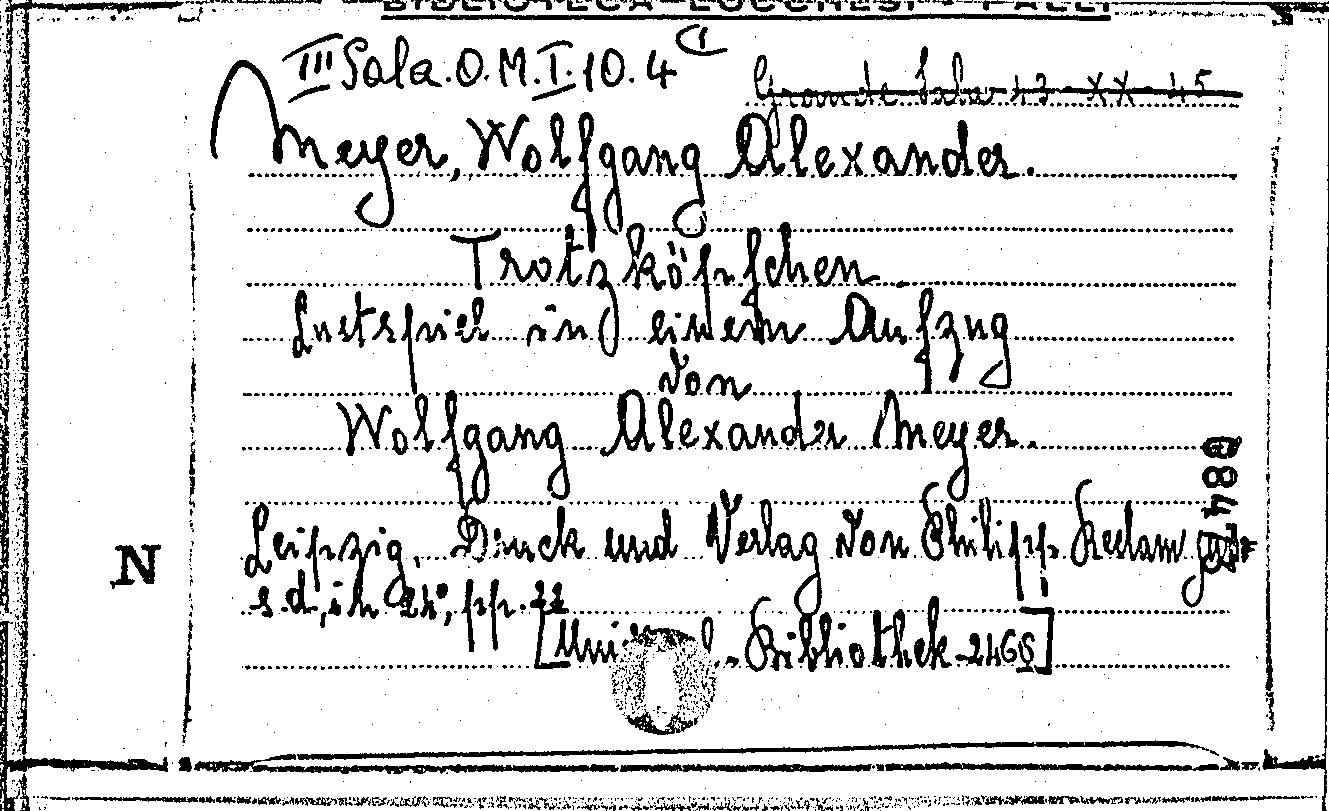 BIBLIOTECA LUCCHESI - PALLI
III Sala. O. M. I. 10. 4 (1
Grande Sala 43 - XX - 45
Meyer, Wolfgang Alexander.
Trotzköpfchen.
Lustspiel in einem Aufzug
von
Wolfgang Alexander Meyer.
Leipzig, Druck und Verlag von Philipp Reclam jun
s. d., in 24°, pp. 22
[Bibliothek - 2466]
N